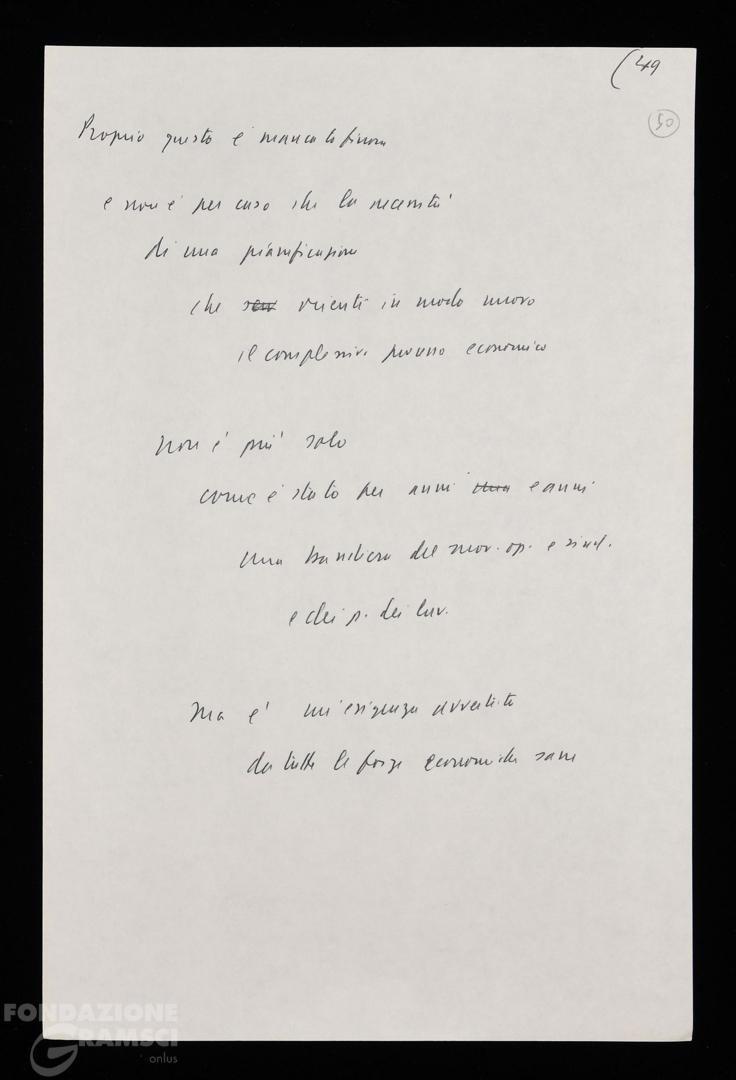 (49
50
Proprio questo è mancato finora
e non è per caso che la necessità
di una pianificazione
che orienti in modo nuovo
il complessivo processo economico
non è più solo
come è stato per anni e anni
una bandiera del mov. op. e sind.
e dei p. dei lav.
Ma è un'esigenza avvertita
da tutte le forze economiche sane
FONDAZIONE
GRAMSCI
onlus